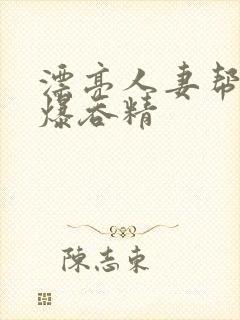 漂亮人妻帮
爆吞精
陈志东